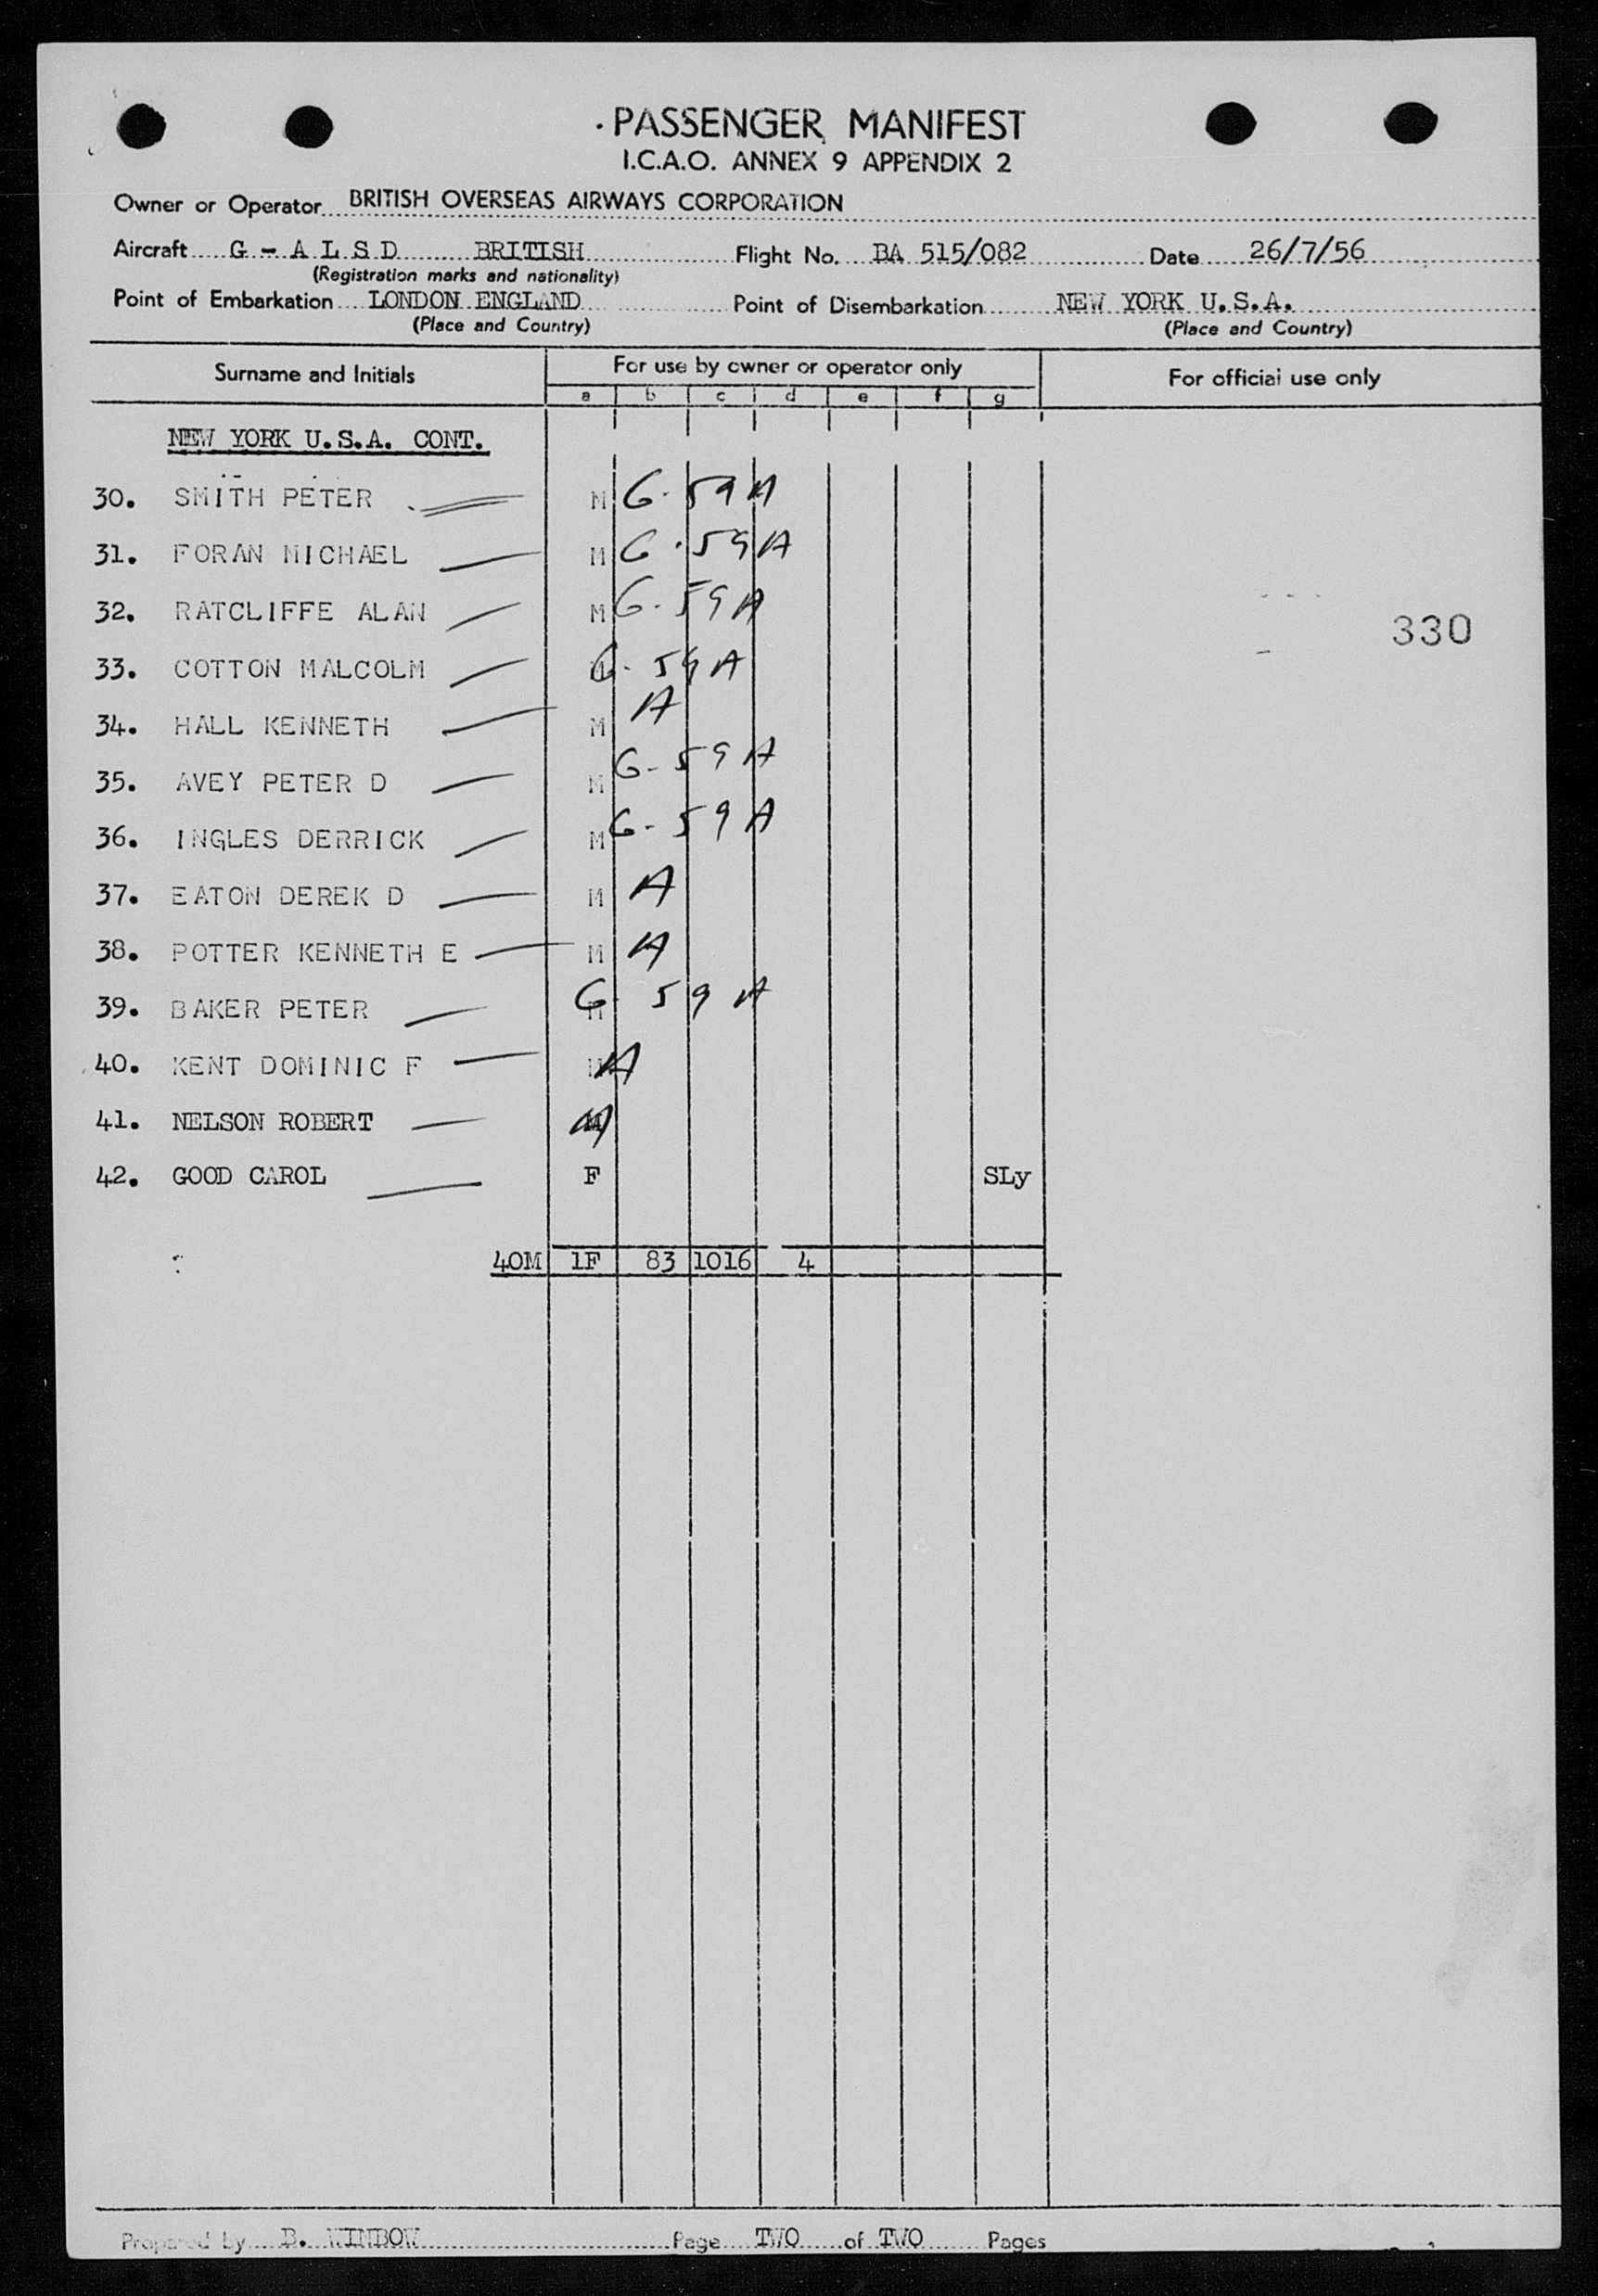 PASSENGER MANIFEST
I.C.A.O. ANNEX 9 APPENDIX 2
Owner or Operator BRITISH OVERSEAS AIRWAYS CORPORATION
Aircraft G - A L S D BRITISH Flight No. BA 515/082 Date 26/7/56
(Registration marks and nationality)
Point of Embarkation LONDON ENGLAND Point of Disembarkation NEW YORK U.S.A.
(Place and Country) (Place and Country)
Surname and Initials For use by owner or operator only For official use only
a b c d e f g
NEW YORK U.S.A. CONT.
30. SMITH PETER M G-59 A
31. FORAN MICHAEL M G-59 A
32. RATCLIFFE ALAN M G-59 A
330
33. COTTON MALCOLM M G-59 A
34. HALL KENNETH M A
35. AVEY PETER D M G-59 A
36. INGLES DERRICK M G-59 A
37. EATON DEREK D M A
38. POTTER KENNETH E M A
39. BAKER PETER M G-59 A
40. KENT DOMINIC F M A
41. NELSON ROBERT M A
42. GOOD CAROL F SLy
40M 1F 83 1016 4
Prepared by B. WINBOW Page TWO of TWO Pages